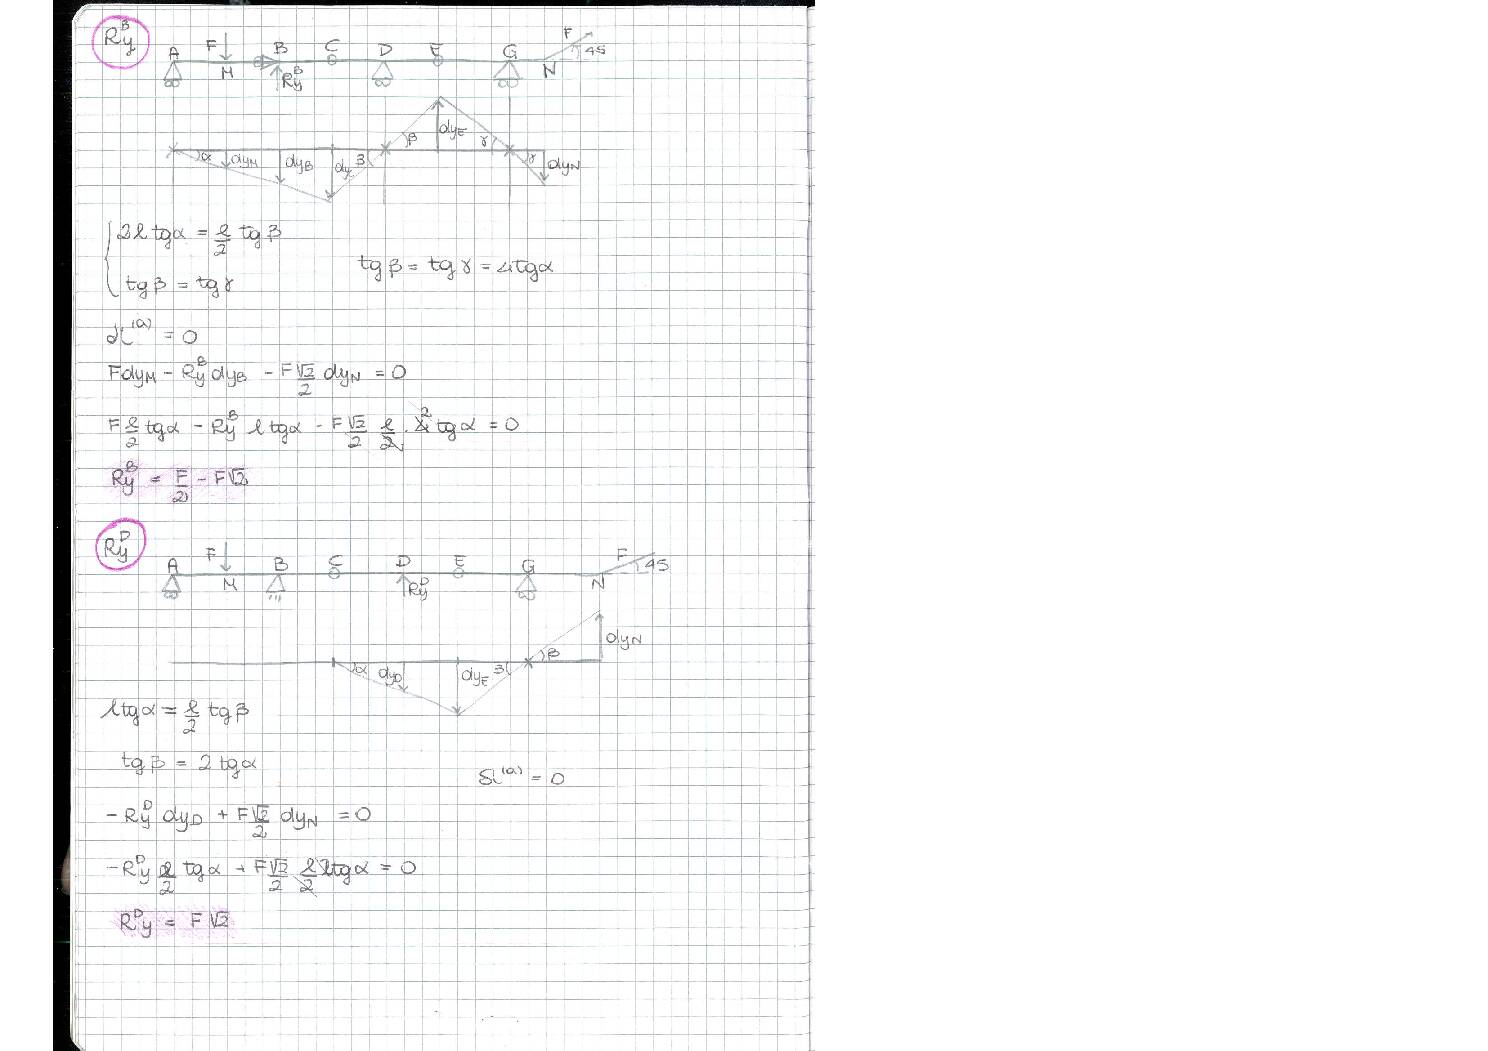 Ry^B
A F M B Ry^B C D E G N F 45
α dyM dyB dyC β β dyE γ γ dyN
2l tgα = l/2 tgβ
tgβ = tgγ
tgβ = tgγ = 4tgα
dL^(a) = 0
F dyM - Ry^B dyB - F √2/2 dyN = 0
F l/2 tgα - Ry^B l tgα - F √2/2 l/2 · 4 2 tgα = 0
Ry^B = F/2 - F√2
Ry^D
A F M B C D Ry^D E G N F 45
α dyD dyE β β dyN
l tgα = l/2 tgβ
tgβ = 2 tgα
δL^(a) = 0
- Ry^D dyD + F √2/2 dyN = 0
- Ry^D l/2 tgα + F √2/2 l/2 2 tgα = 0
R^Dy = F √2